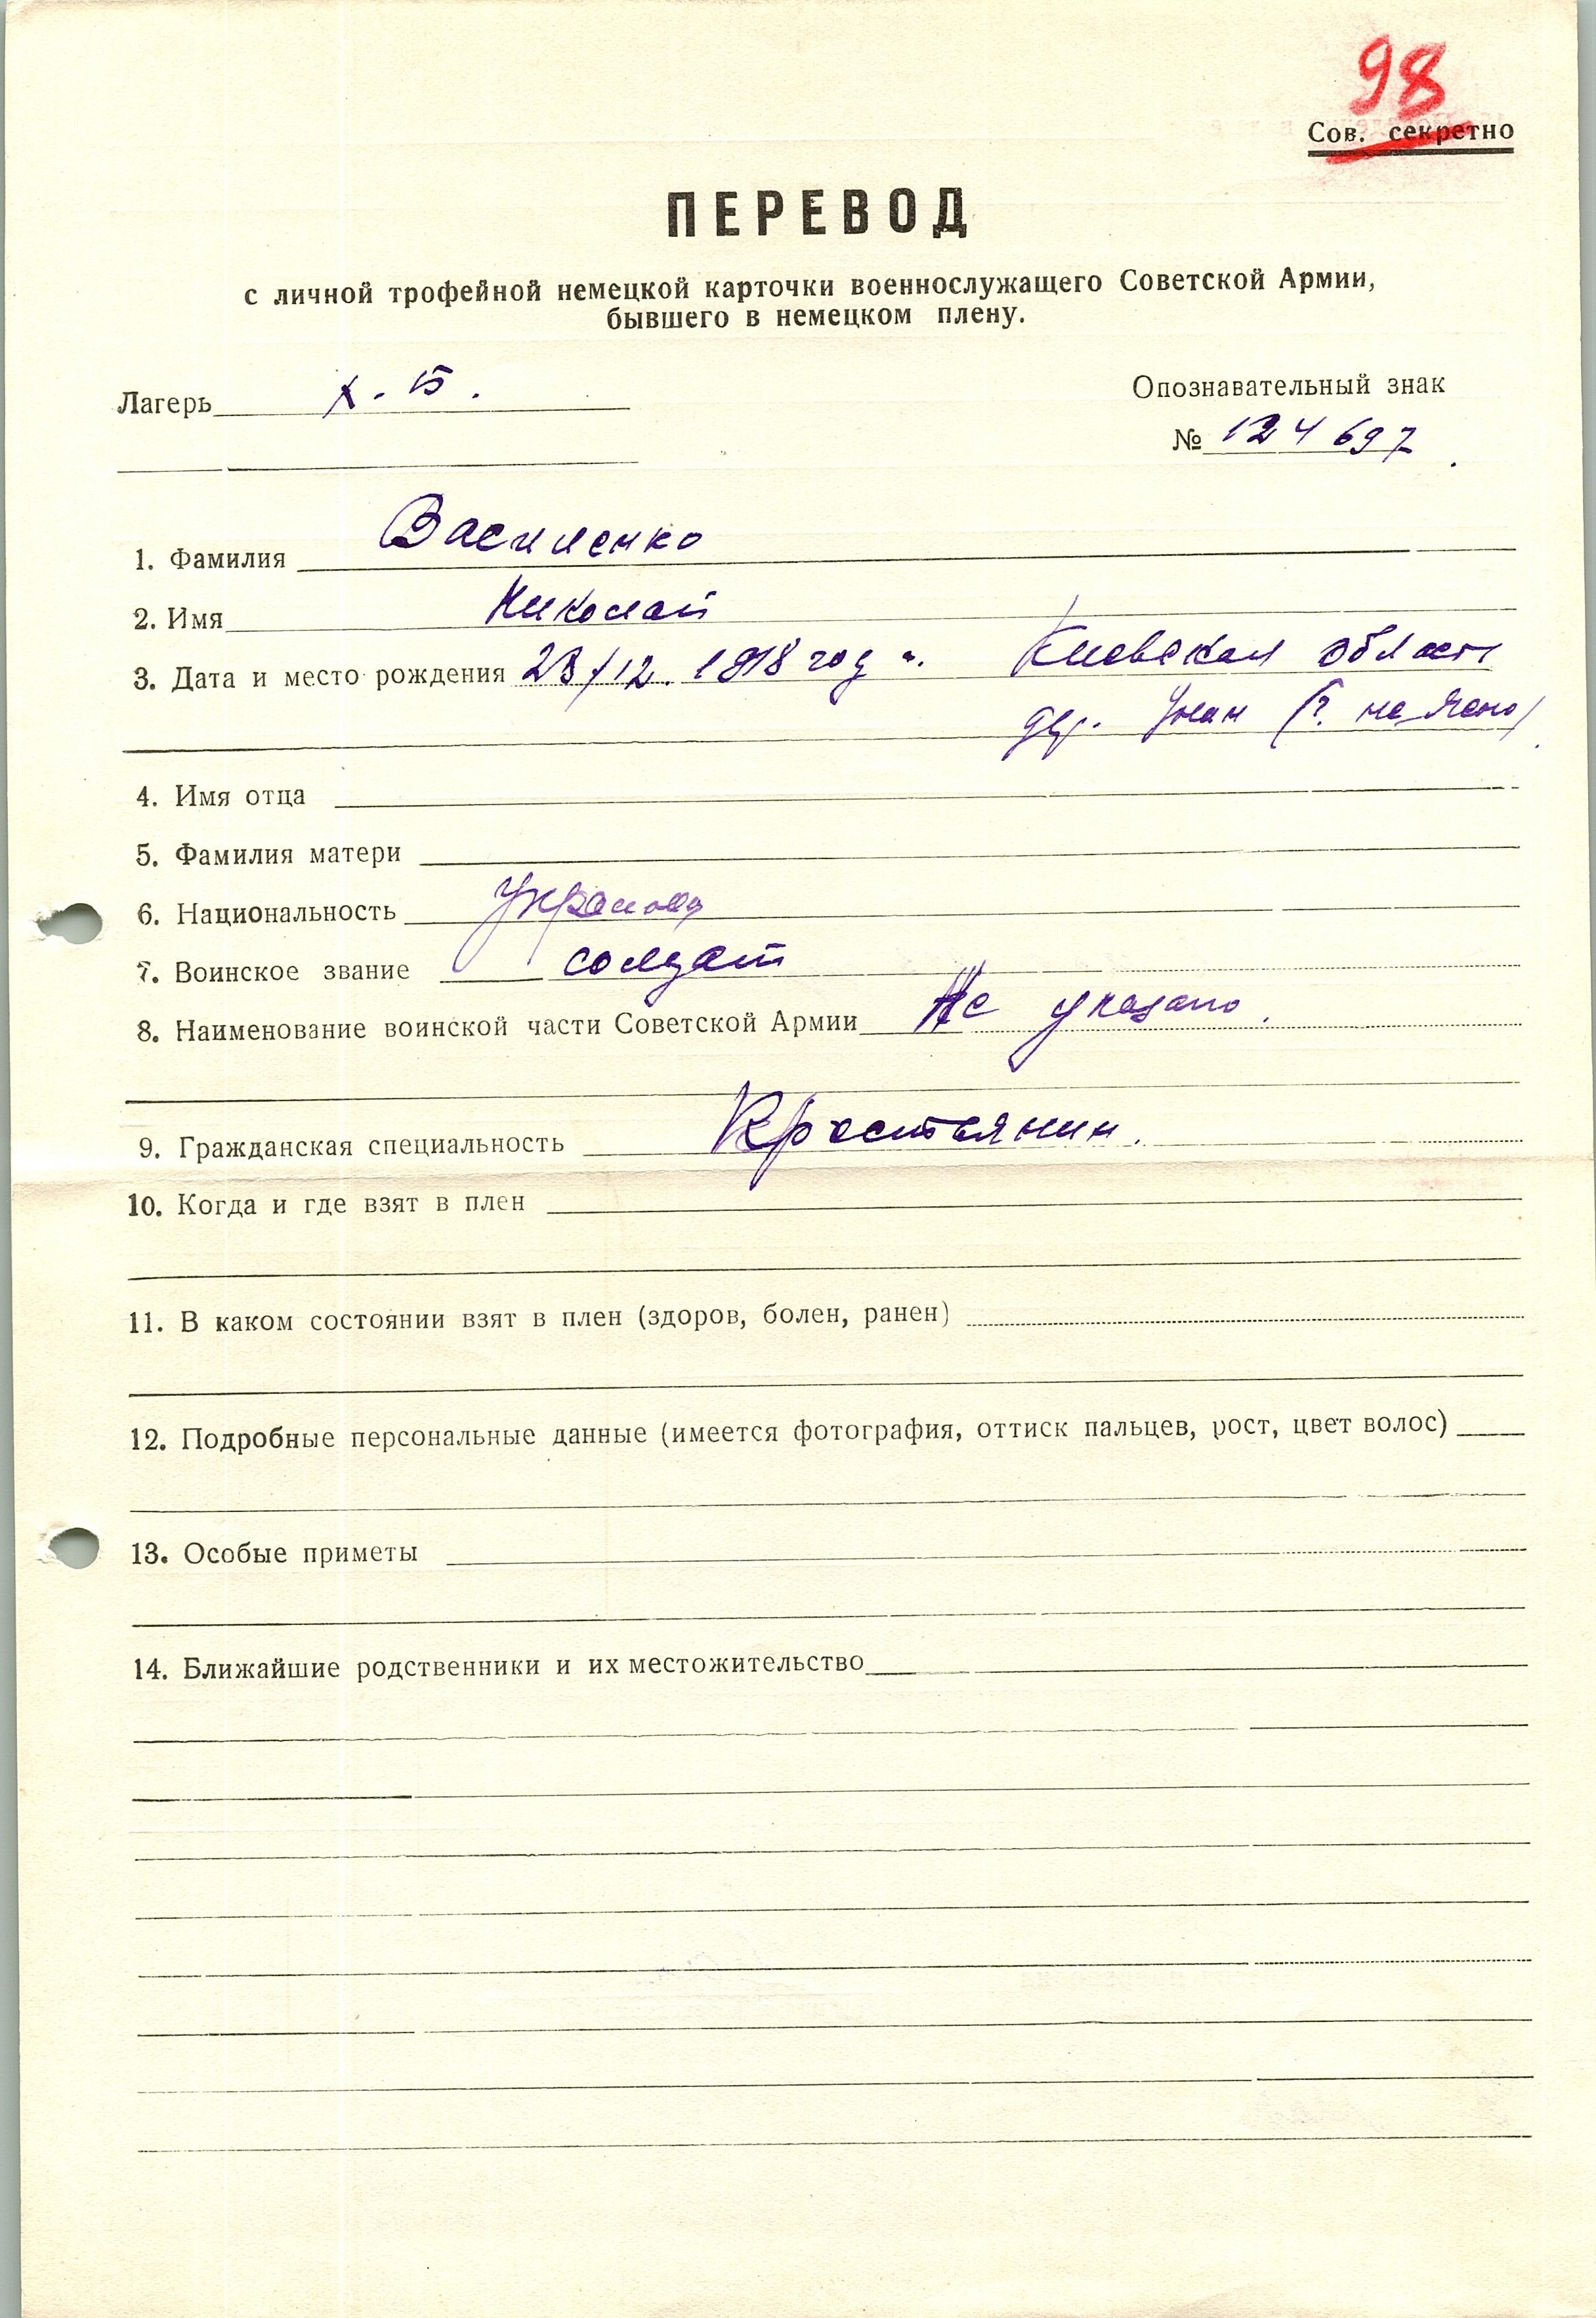 98
Сов. секретно
ПЕРЕВОД
с личной трофейной немецкой карточки военнослужащего Советской Армии,
бывшего в немецком плену.
Лагерь X-Б. Опознавательный знак
№ 124697.
1. Фамилия Василенко
2. Имя Николай
3. Дата и место рождения 23/12. 1918 год Киевская область
дер. Умань (? не ясно)
4. Имя отца
5. Фамилия матери
6. Национальность
7. Воинское звание солдат
8. Наименование воинской части Советской Армии Не указано.
9. Гражданская специальность Крестьянин.
10. Когда и где взят в плен
11. В каком состоянии взят в плен (здоров, болен, ранен)
12. Подробные персональные данные (имеется фотография, оттиск пальцев, рост, цвет волос)
13. Особые приметы
14. Ближайшие родственники и их местожительство